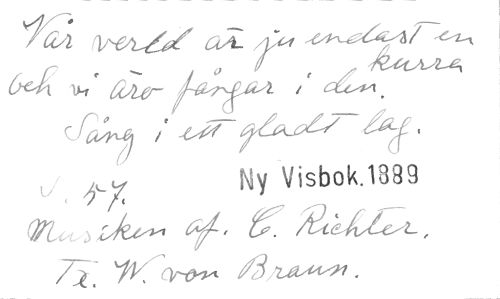 Vår verld är ju endast en kurra
och vi äro fångar i den.
Sång i ett gladt lag.
S. 57.
Ny Visbok. 1889
Musiken af. C. Richter.
Tx. W. von Braun.